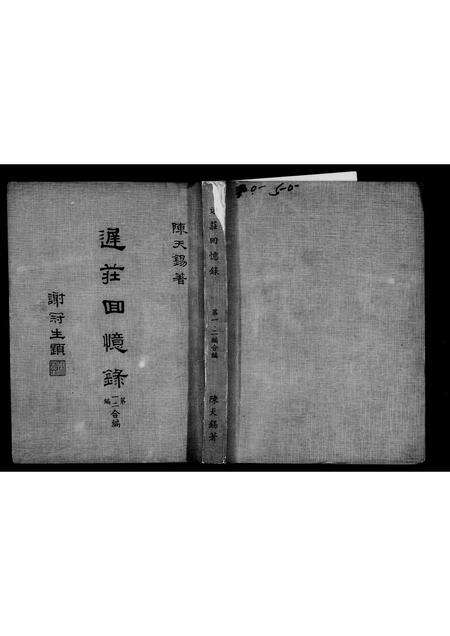 陳天錫著
遲莊回憶錄
第一二編合編
謝冠生題
莊回憶錄
第一二編合編
陳天錫著